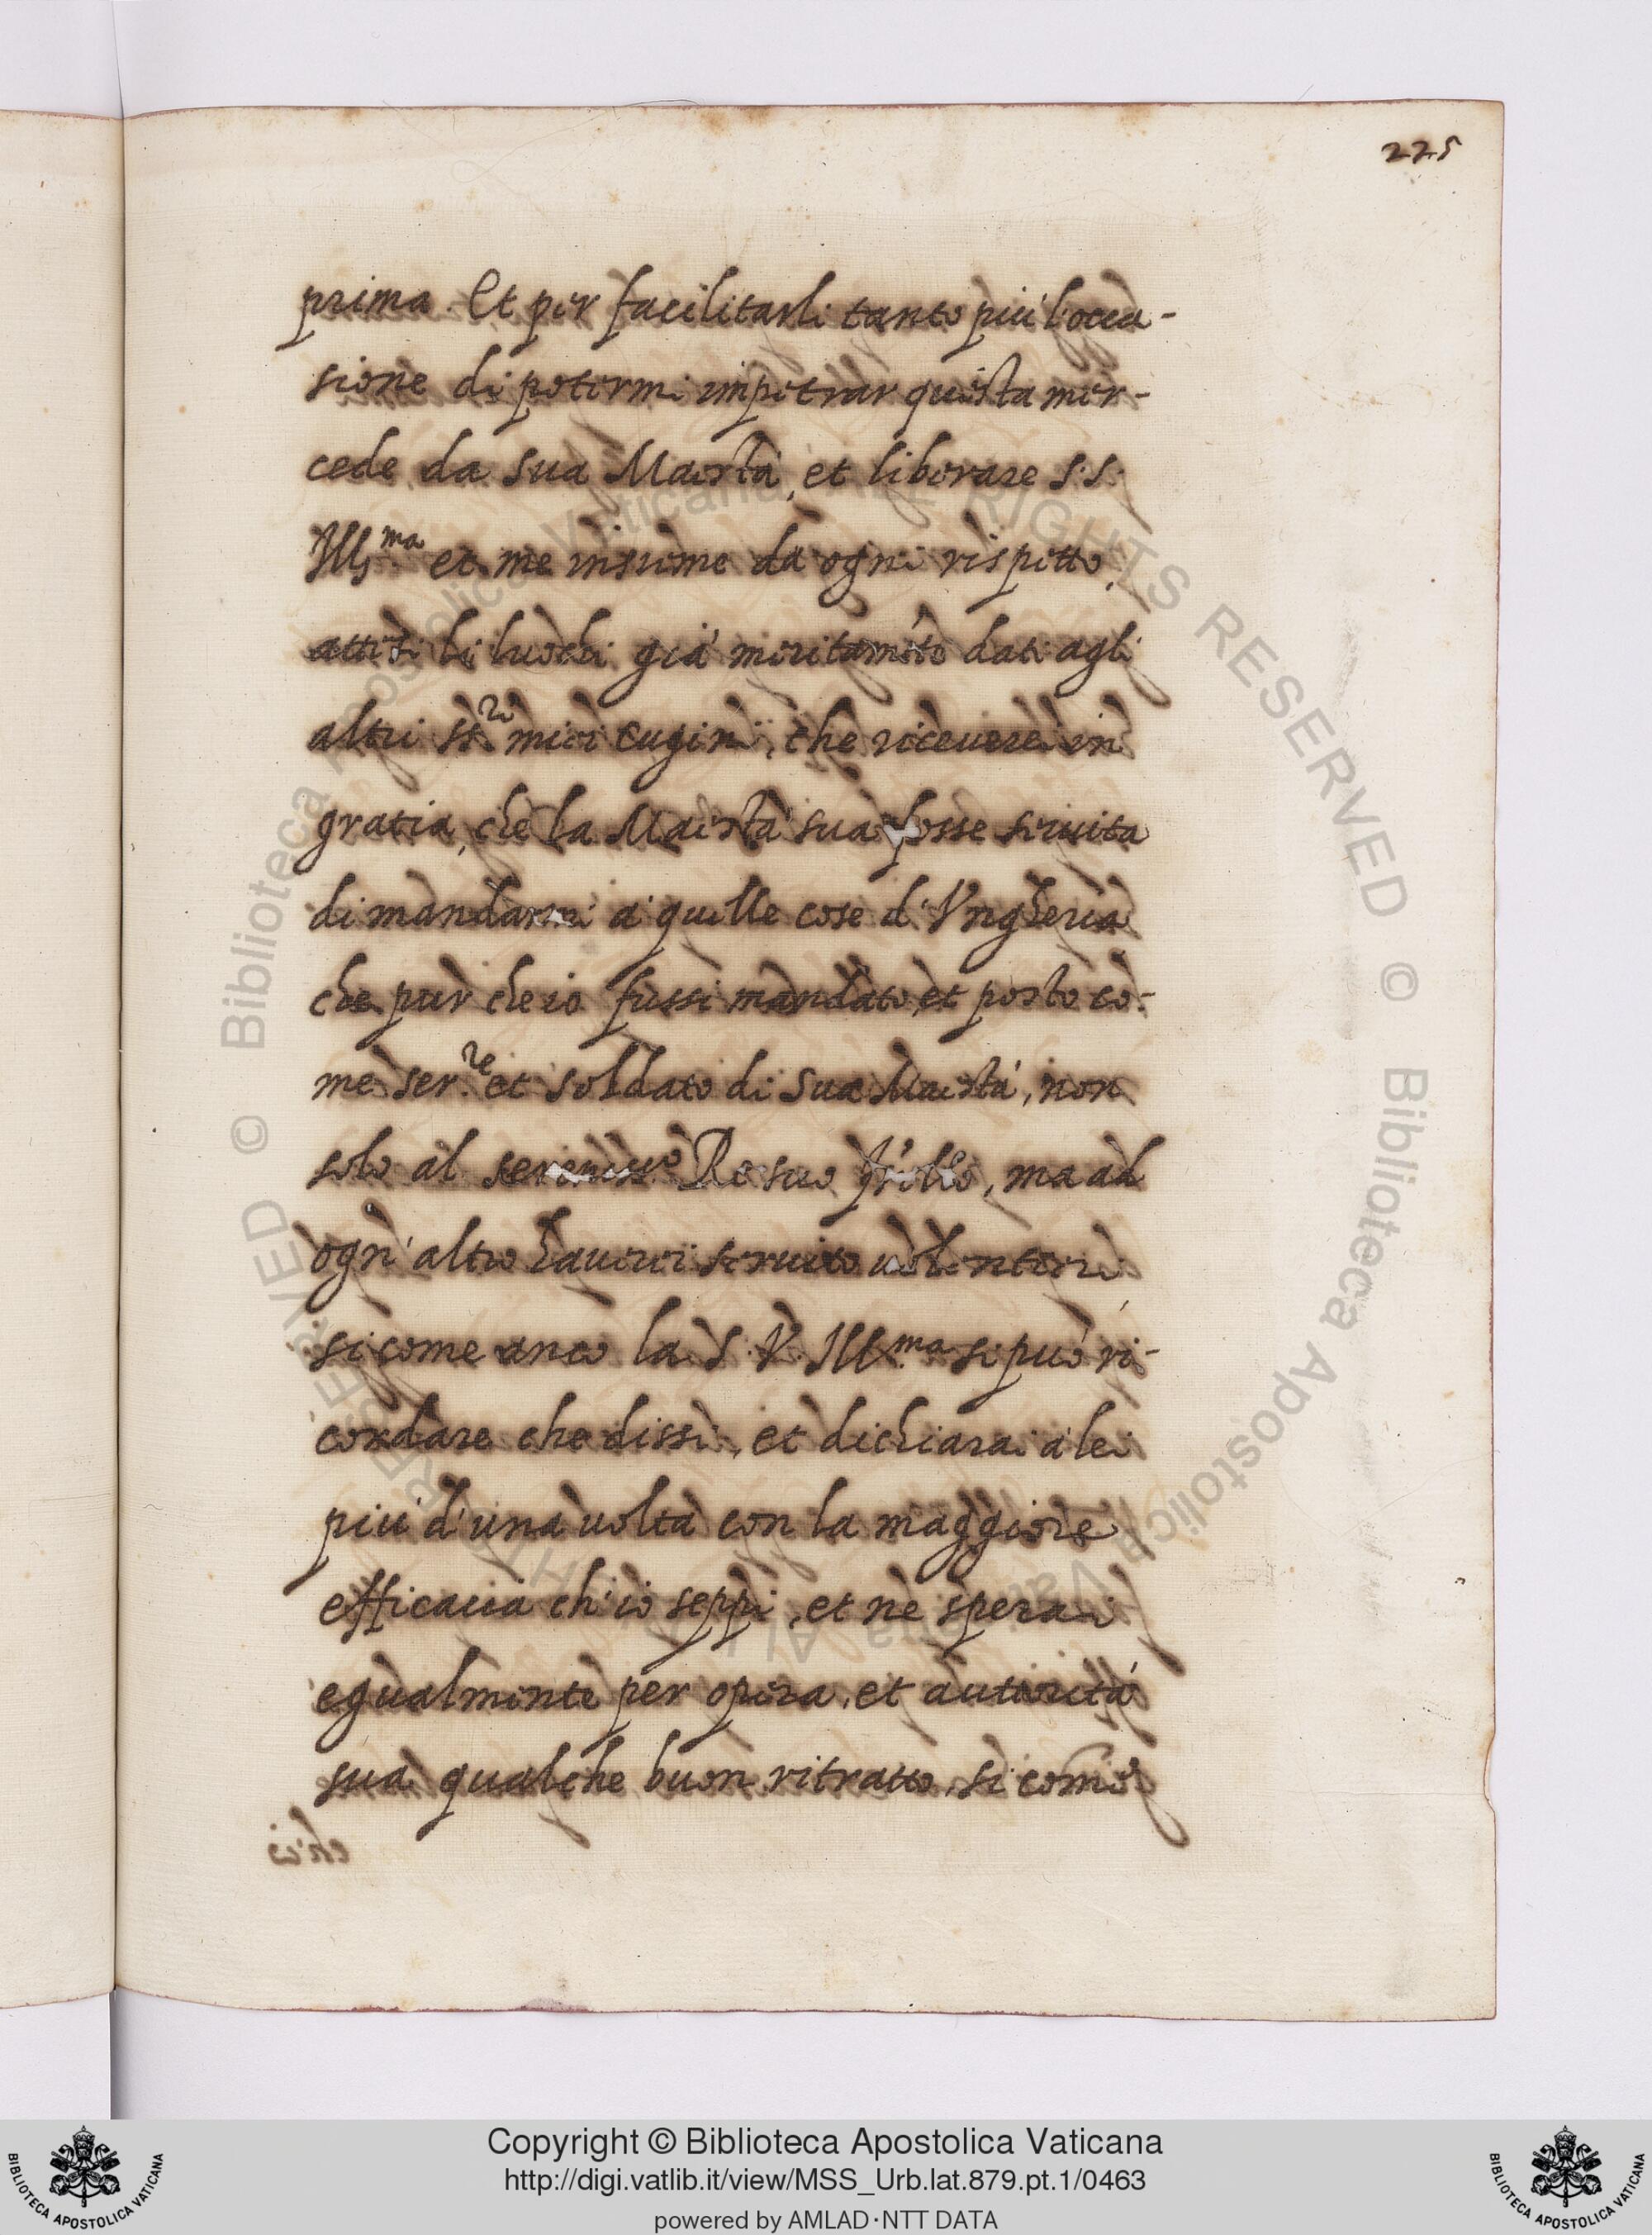 225
prima. Et per facilitarli tanto più l'occa-
sione di potermi impetrar questa mer-
cede da sua Maestà, et liberare S.S.
Ill.ma et me insieme da ogni rispetto,
attesi li luochi già meritam.te dati agli
altri ss.ri miei cugini, che riceverei in
gratia, che la Maestà sua fosse servita
di mandarmi a quelle cose d'Ungheria
che pur che io fussi mandato, et posto co-
me ser.re et soldato di Sua Maestà, non
solo al sereniss.o Re suo figlio, ma ad
ogn'altro haverei servito volentieri
si come anco la S.V. Ill.ma si può ri-
cordare che dissi, et dichiarai a lei
più d'una volta con la maggiore
efficacia ch'io seppi, et ne sperai
egualmente per opera, et autorità
sua qualche buon ritratto, si come
ch'io
© Biblioteca Apostolica Vaticana ALL RIGHTS RESERVED © Biblioteca Apostolica Vaticana ALL RIGHTS RESERVED
Copyright © Biblioteca Apostolica Vaticana
http://digi.vatlib.it/view/MSS_Urb.lat.879.pt.1/0463
powered by AMLAD·NTT DATA
BIBLIOTECA APOSTOLICA VATICANA
BIBLIOTECA APOSTOLICA VATICANA